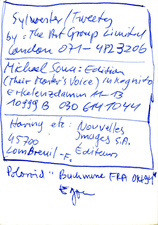 Sylvester/Tweety
by: The Art Group Limited
London 071-482 3206
Michael Sowa: Edition
(Their Master's Voice) Inkognito
Erkelenzdamm 11-13
10999 B 030 614 10441
Haring etc: Nouvelles
45700 Images S.A.
Lombreuil-F. Editeurs
Polaroid "Buchmesse FRA